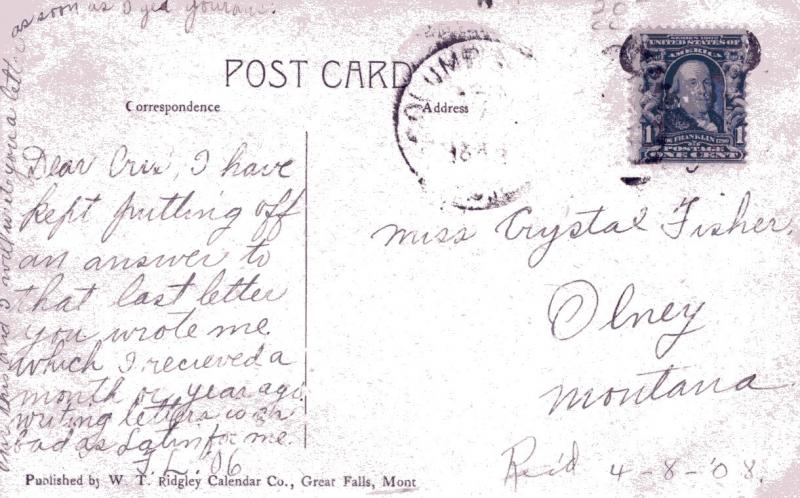 as soon as I get yours.
POST CARD
Correspondence
Address
SERIES 1902
UNITED STATES OF
AMERICA
1 FRANKLIN 1
POSTAGE
ONE CENT
COLUMB
Dear Cris, I have
kept putting off
an answer to
that last letter
you wrote me
which I recieved a
month or years ago.
writing letters is as
bad as Latin for me.
this and I will write you a letter
Miss Crystal Fisher.
Olney
Montana
Rec'd 4-8-'08.
Published by W. T. Ridgley Calendar Co., Great Falls, Mont